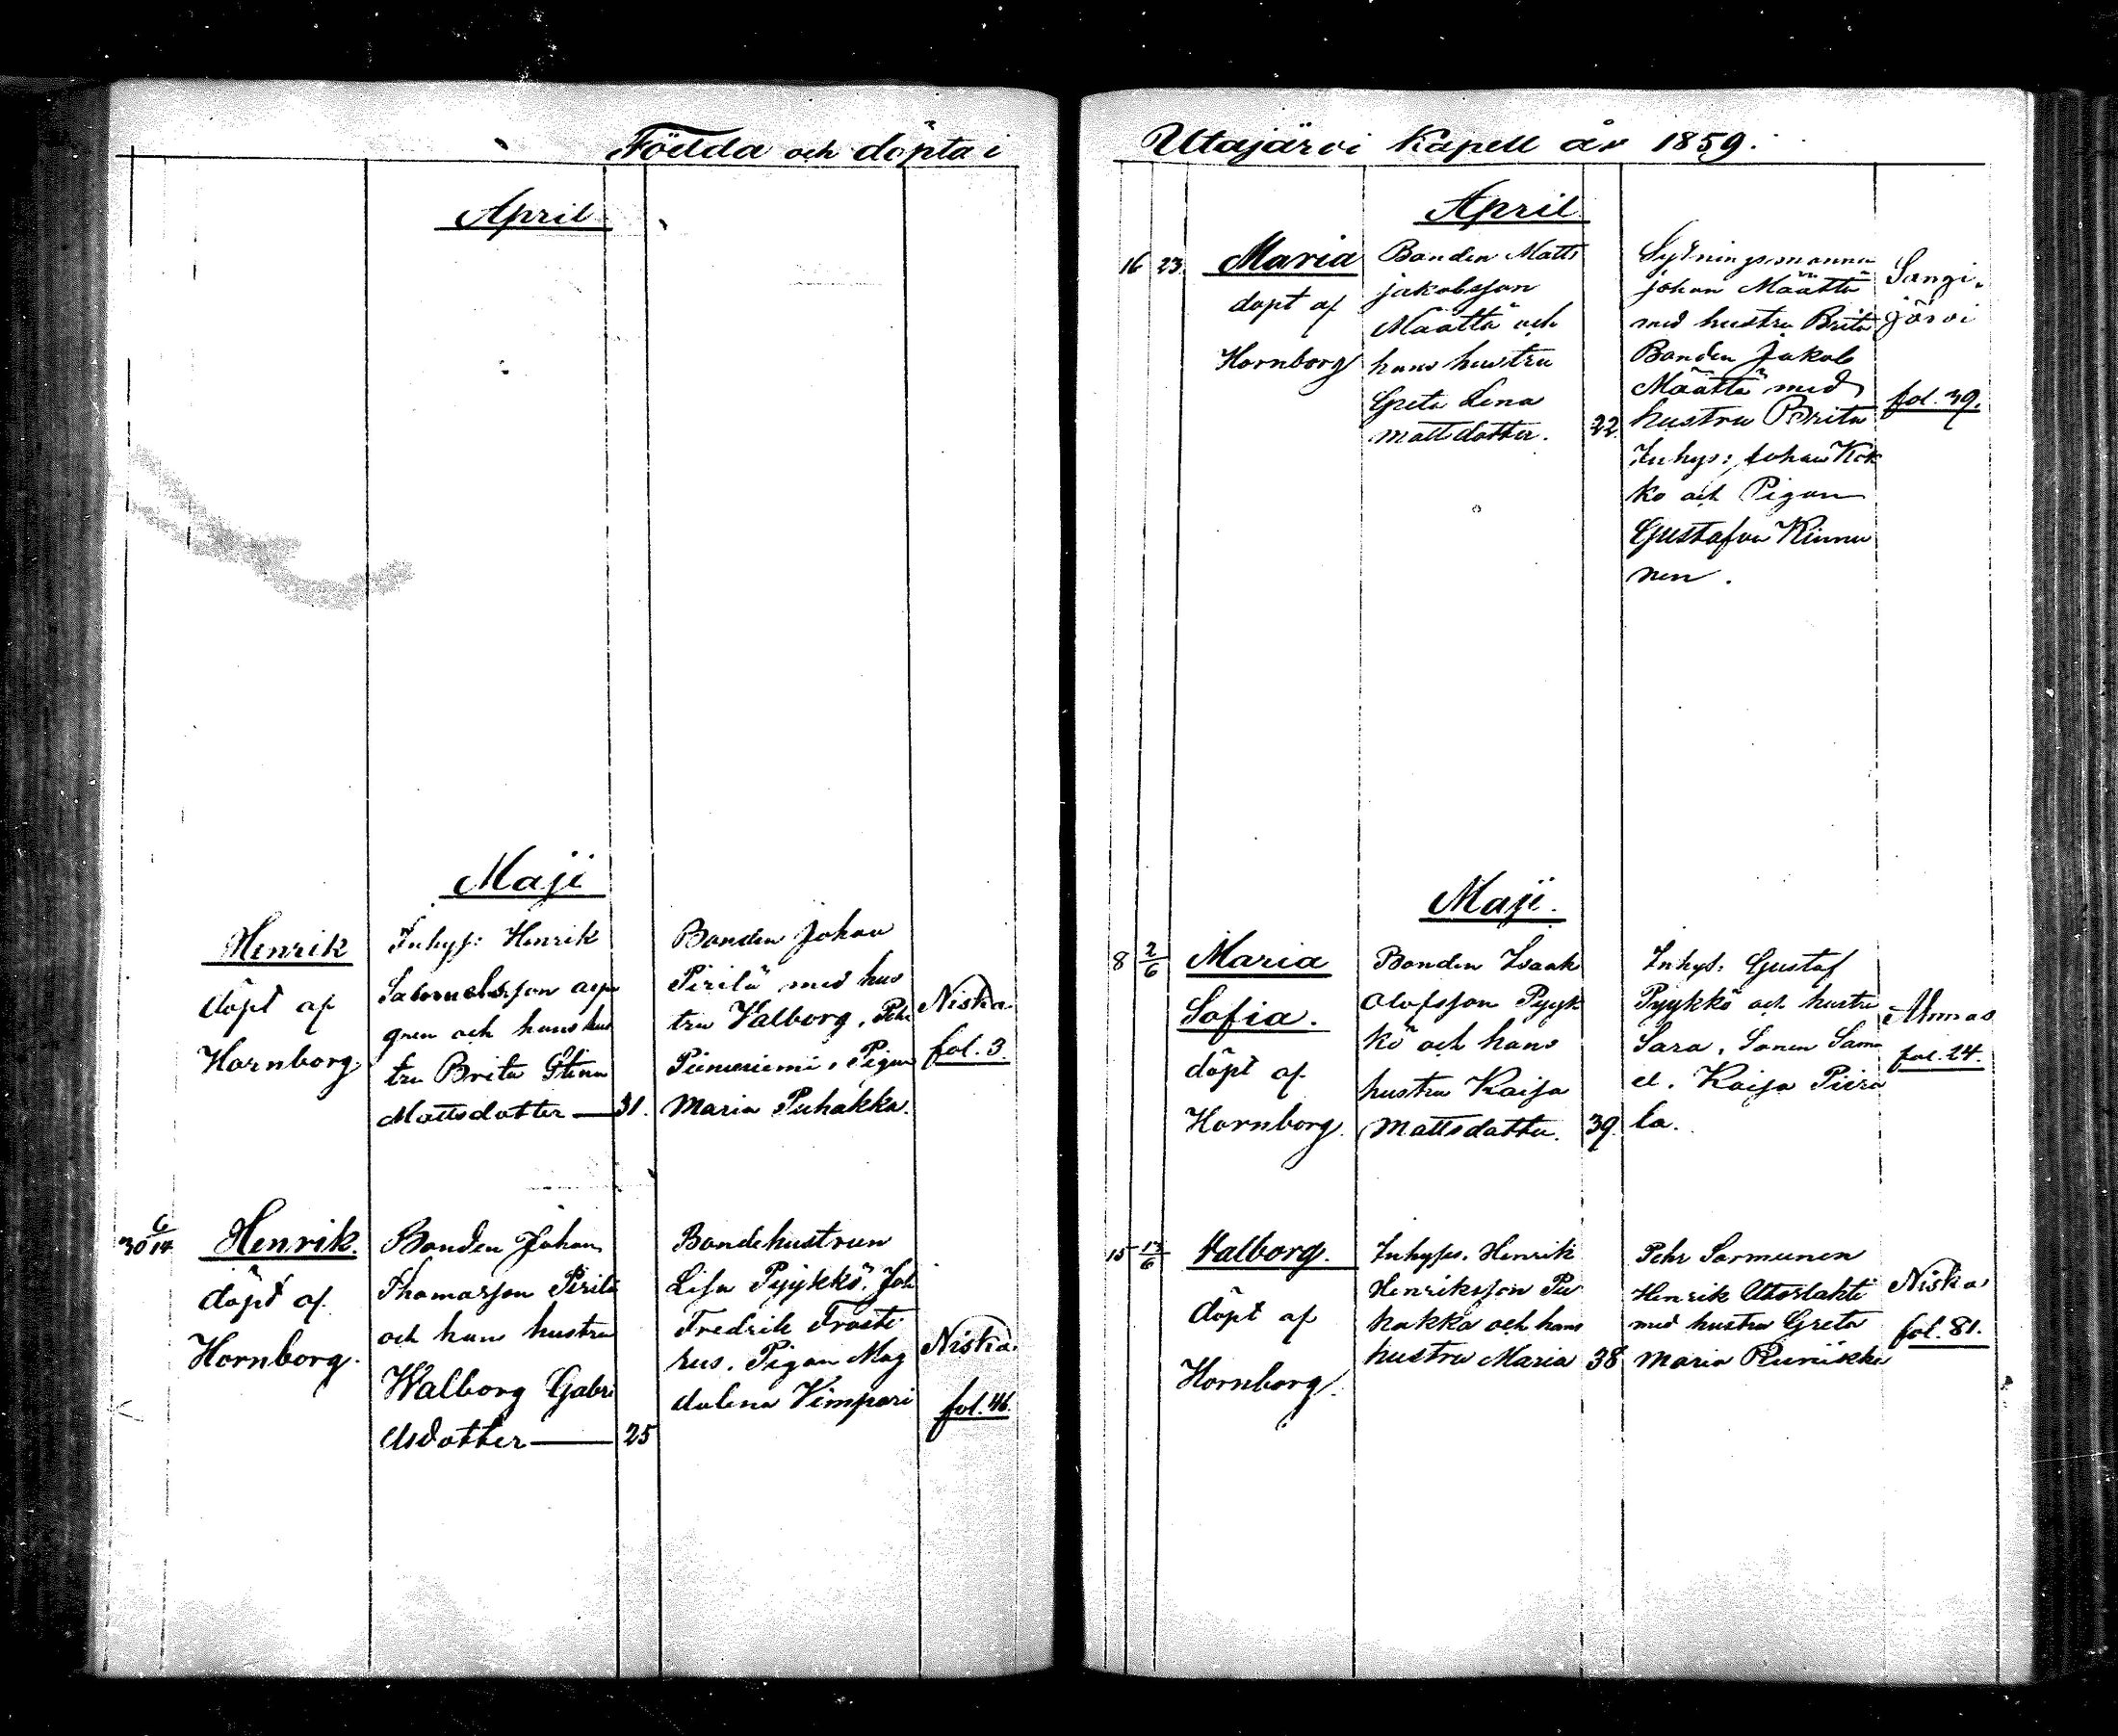 Födda och döpta i
April
Maji
Henrik
döpt af
Hornborg.
Inhys: Henrik
Samuelsson
gren och hans hus
tru Brita Stina
Mattsdotter — 31.
Bonden Johan
Pirilä med hus
tru Valborg, Pehr
Pigan
Maria Puhakka.
Niska
fol. 3.
30 6/14
Henrik.
döpt af
Hornborg.
Bonden Johan
Thomasson Pirilä
och hans hustru
Walborg Gabri
elsdotter — 25
Bondehustrun
Lisa Pyykkö, Joh
Fredrik Frosti
rus. Pigan Mag
dalena Vimpari
Niska.
fol. 46.
Utajärvi Kapell år 1859.
April
16 23.
Maria
döpt af
Hornborg
Bonden Matts
Jakobsson
Määttä och
hans hustru
Greta Lena
Mattsdotter. 22.
Sytningsmannen
Johan Määttä
med hustru Brita
Bonden Jakob
Määttä med
hustru Brita
Inhys: Johan Kok
ko och Pigan
Gustafva Kinnu
nen.
Sangi-
järvi
fol. 39.
Maji.
8 2/6
Maria
Sofia.
döpt af
Hornborg.
Bonden Isaak
Olofsson Pyyk
kö och hans
hustru Kaisa
Mattsdotter. 39.
Inhys: Gustaf
Pyykkö och hustru
Sara, Sonen Samu
el. Kaisa Piira
la.
Ahmas
fol. 24.
15 13/6
Valborg.
döpt af
Hornborg.
Inhyses. Henrik
Henriksson Pu
hakka och hans
hustru Maria 38
Pehr Sarmunen
Henrik Utoslahti
med hustru Greta
Maria
Niska
fol. 81.